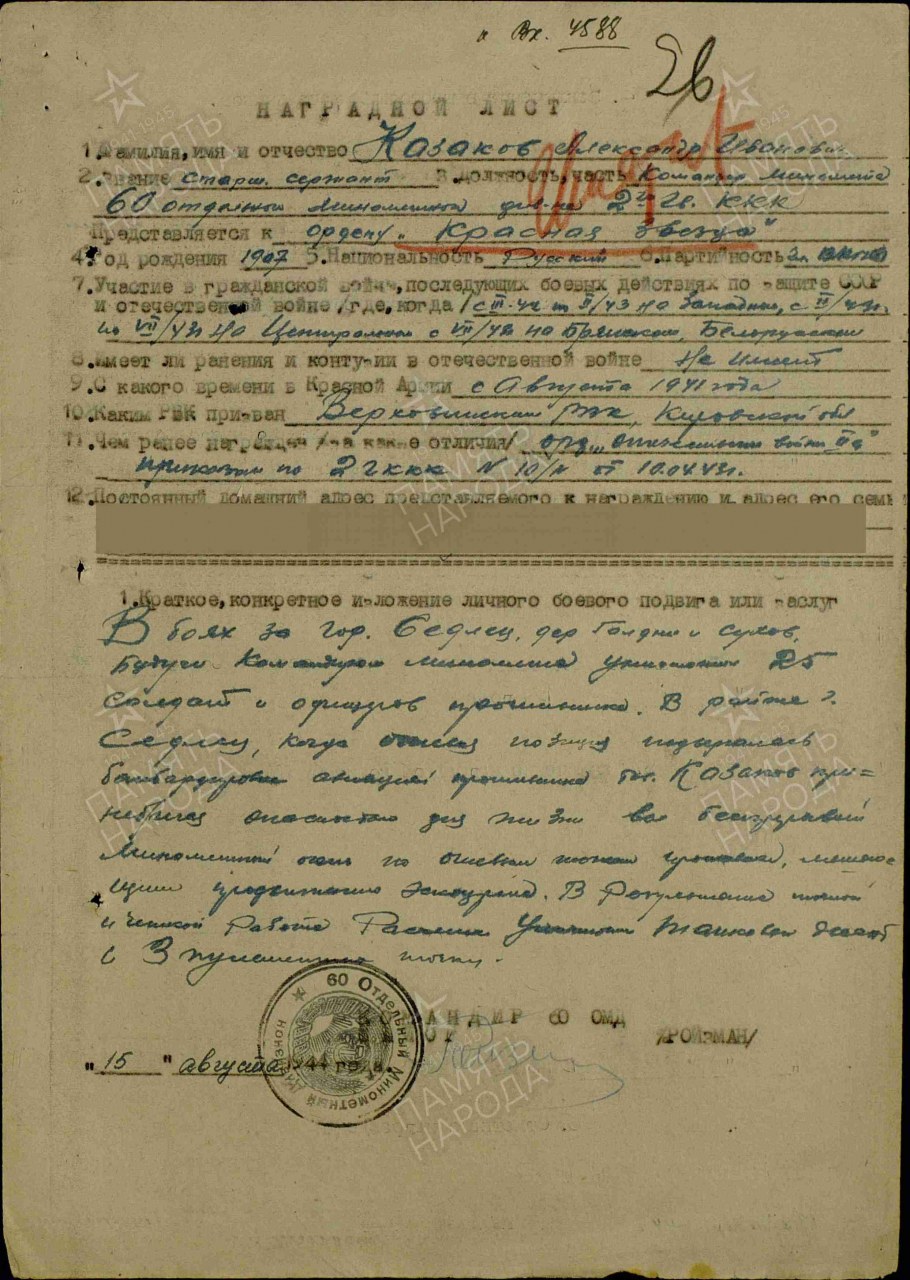 Вх. 4588
26
НАГРАДНОЙ ЛИСТ
1. Фамилия, имя и отчество Казаков Александр Иванович
2. Звание старш. сержант 3. Должность, часть Командир миномета
60 отдельный минометный див-на 2й Гв. ККК
Представляется к ордену "Красная Звезда"
4. Год рождения 1907 5. Национальность Русский 6. Партийность
7. Участие в гражданской войне, последующих боевых действиях по защите СССР
и отечественной войне /где, когда/ с III-42 по II/43 на Западном, с II/43г.
по VII/43г на Центральном с VII/43 на Брянском, Белорусском
8. Имеет ли ранения и контузии в отечественной войне Не имеет
9. С какого времени в Красной Армии с Августа 1941 года
10. Каким РВК призван РВК, Кировской обл
11. Чем ранее награжден /за какие отличия/ орд. "Отечественной войны II ст"
приказом по 2 гккк N 10/н от 10.04.43г.
12. Постоянный домашний адрес представляемого к награждению и адрес его семьи
1. Краткое, конкретное изложение личного боевого подвига или заслуг
В боях за гор. Седлец, дер и Сухов,
Будучи Командиром миномета уничтожил 25
солдат и офицеров противника. В районе г.
Седлец, когда огневая позиция подвергалась
бомбардировке авиацией противника тов. Казаков пре=
небрегая опасностью для жизни вел беспрерывный
Минометный огонь по огневым точкам противника, мешаю=
щим продвижению эскадрона. В Результате точной
и четкой Работы Расчета Уничтожил
и 3 пулеметных точки.
КОМАНДИР 60 ОМД
/РОЙЗМАН/
"15" августа 1944 года.
60 Отдельный Минометный Дивизион
ПАМЯТЬ НАРОДА